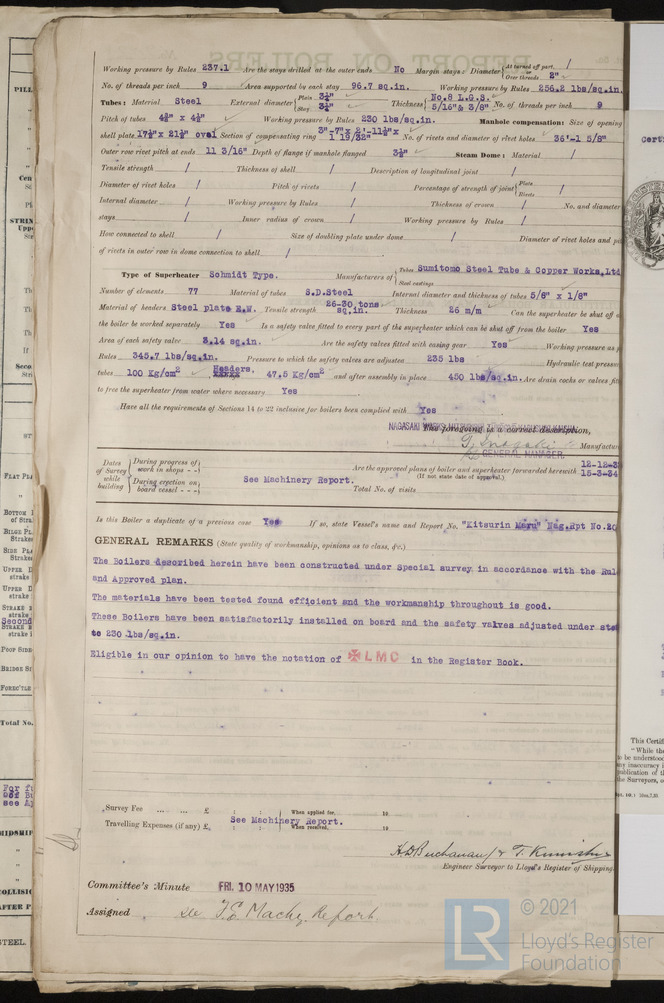 Working pressure by Rules 237.1 Are the stays drilled at the outer ends No Margin stays: Diameter { At turned off part, / or Over threads 2"
No. of threads per inch 9 Area supported by each stay 96.7 sq.in. Working pressure by Rules 256.2 lbs/sq.in.
Tubes: Material Steel External diameter { Plain 3¼" Stay 3¼" Thickness { No.8 L.G.S. 5/16" & 3/8" No. of threads per inch 9
Pitch of tubes 4½" x 4½" Working pressure by Rules 230 lbs/sq.in. Manhole compensation: Size of opening
shell plate 17½" x 21½" oval Section of compensating ring 3"-7" x 2'-11½" x 1 19/32" No. of rivets and diameter of rivet holes 36'-1 5/8"
Outer row rivet pitch at ends 11 3/16" Depth of flange if manhole flanged 3½" Steam Dome: Material /
Tensile strength / Thickness of shell / Description of longitudinal joint /
Diameter of rivet holes / Pitch of rivets / Percentage of strength of joint { Plate Rivets /
Internal diameter / Working pressure by Rules / Thickness of crown / No. and diameter
stays / Inner radius of crown / Working pressure by Rules /
How connected to shell / Size of doubling plate under dome / Diameter of rivet holes and
of rivets in outer row in dome connection to shell /
Type of Superheater Schmidt Type. Manufacturers of { Tubes Sumitomo Steel Tube & Copper Works, Ltd Steel castings
Number of elements 77 Material of tubes S.D.Steel Internal diameter and thickness of tubes 5/8" x 1/8"
Material of headers Steel plate E.W. Tensile strength 26-30 tons sq.in. Thickness 26 m/m Can the superheater be shut off
the boiler be worked separately Yes Is a safety valve fitted to every part of the superheater which can be shut off from the boiler Yes
Area of each safety valve 3.14 sq.in. Are the safety valves fitted with easing gear Yes Working pressure as
Rules 345.7 lbs/sq.in. Pressure to which the safety valves are adjusted 235 lbs Hydraulic test pressure
tubes 100 Kg/cm² Headers, 47.5 Kg/cm² and after assembly in place 450 lbs/sq.in. Are drain cocks or valves
to free the superheater from water where necessary Yes
Have all the requirements of Sections 14 to 22 inclusive for boilers been complied with Yes
The foregoing is a correct description,
GENERAL MANAGER. Manufactu
Dates of Survey while building { During progress of work in shops - - During erection on board vessel - - - See Machinery Report. Are the approved plans of boiler and superheater forwarded herewith (If not state date of approval.) 12-12-3 15-3-34
Total No. of visits
Is this Boiler a duplicate of a previous case Yes If so, state Vessel's name and Report No. "Kitsurin Maru" Nag.Rpt No.20
GENERAL REMARKS (State quality of workmanship, opinions as to class, &c.)
The Boilers described herein have been constructed under Special survey in accordance with the Rul
and Approved plan.
The materials have been tested found efficient and the workmanship throughout is good.
These Boilers have been satisfactorily installed on board and the safety valves adjusted under ste
to 230 lbs/sq.in.
Eligible in our opinion to have the notation of ✠LMC in the Register Book.
Survey Fee ... ... £ : : When applied for, 19
Travelling Expenses (if any) £ : : See Machinery Report. When received, 19
H.D.Buchanan & T.
Engineer Surveyor to Lloyd's Register of Shipping.
Committee's Minute FRI. 10 MAY 1935
Assigned See F.E. Machy. Report
LR © 2021
Lloyd's Register
Foundation